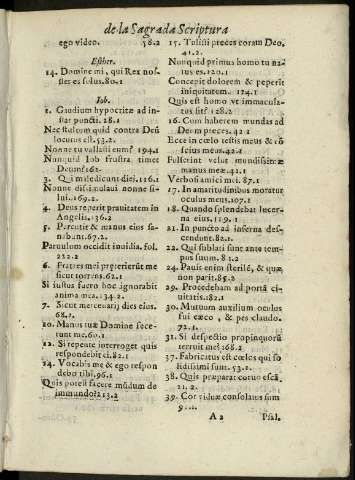 de la Sagrada Scriptura
ego video. 58.2
Esther.
14. Domine mi, qui Rex nos-
ter es solus. 80.1
Iob.
1. Gaudium hypocritæ ad in-
star puncti. 28.1
Nec stultum quid contra Deũ
locutus est. 53.2.
Nonne tu vallasti eum? 194.1
Nunquid Iob frustra timet
Deum? 161.
3. Qui maledicunt diei. 116.1
Nonne dissimulavi nonne si-
lui. 169.2.
4. Deus reperit pravitatem in
Angelis. 136.2
5. Percutit & manus eius sa-
nabunt. 67.2.
Parvulum occidit invidia. fol.
222.2
6. Fratres mei præterierũt me
sicut torrens. 62.1
Si iustus facro hoc ignorabit
anima mea. 134.2
7. Sicut mercenarij dies eius.
68.2.
10. Manus tuæ Domine fece-
runt me. 60.1
12. Si repente interroget quis
respondebit ei. 82.1
14. Vocabis me & ego respon
debo tibi. 96.1
Quis potest facere mũdum de
immundo? 213.2
15. Tulisti preces coram Deo.
41.2.
Nunquid primus homo tu na-
tus es. 120.1
Concepit dolorem & peperit
iniquitatem. 124.1
Quis est homo vt immacula-
tus sit? 128.2
16. Cum haberem mundas ad
Deum preces. 42.1
Ecce in cælo testis meus & cõ
scius meus. 42.1
manus meæ. 41.1
Verbosi amici mei. 87.1
17. In amaritudinibus moratur
oculus meus. 107.1
18. Quando splendebat lucer-
na eius. 119.1
21. In puncto ad inferna des-
cendunt. 82.1
22. Qui sublati sunt ante tem-
pus suum. 81.2
24. Pavit enim sterilẽ, & quæ
non parit. 85.2
29. Procedebam ad portã ci-
vitatis. 182.1
30. Mutuum auxilium oculus
fui cæco, & pes claudo.
72.1.
31. Si despectio propinquorũ
terruit me? 168.2
37. Fabricatus est cælos qui so
lidissimi sunt. 53.1.
38. Quis præparat corvo escã
21.2
39.
A 2 Psal.